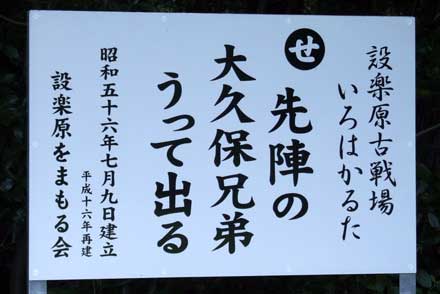 設楽原古戦場
いろはかるた
せ
先陣の
大久保兄弟
うって出る
昭和五十六年七月九日建立
平成十六年再建
設楽原をまもる会